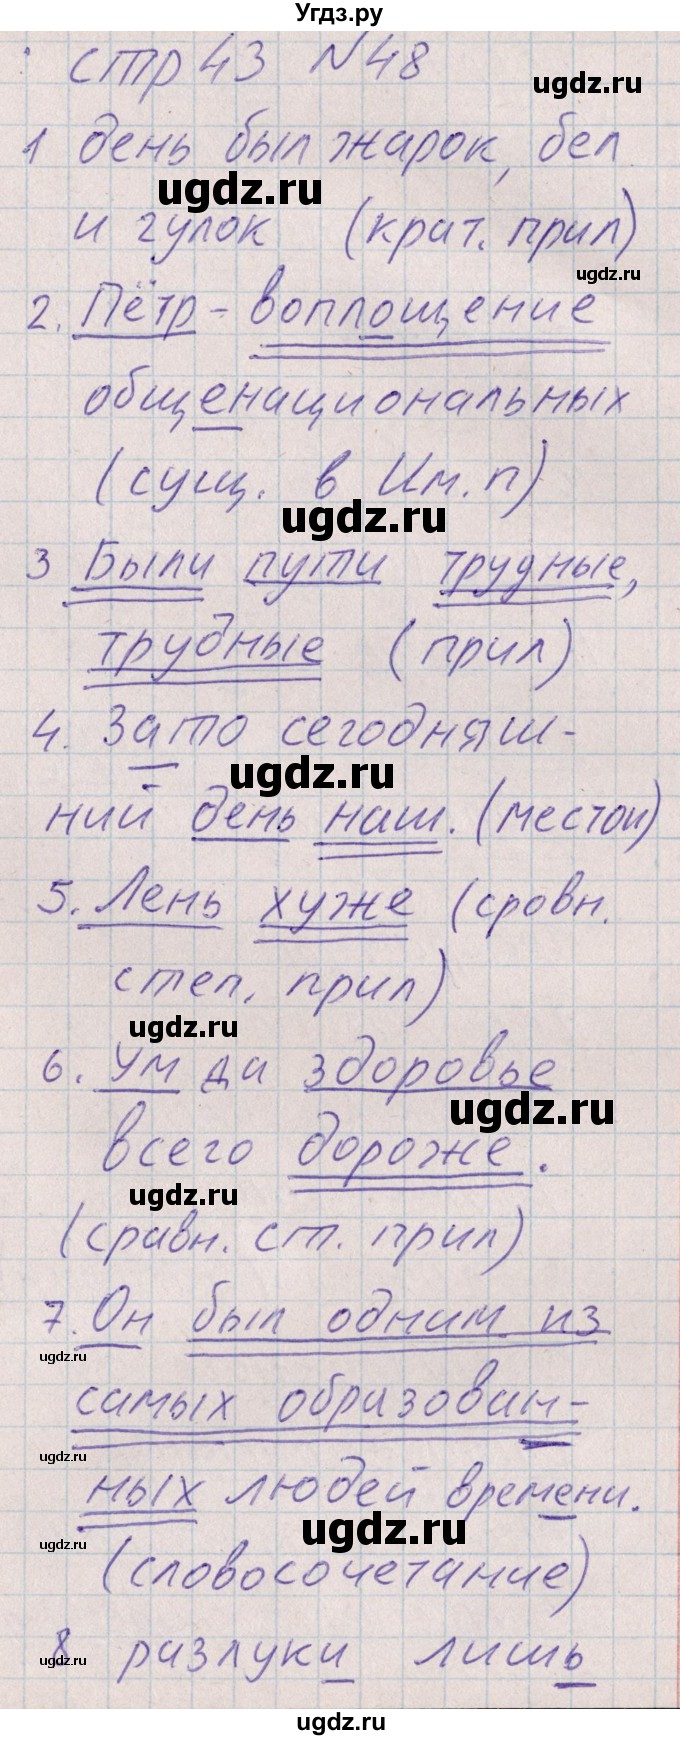 Угдз.ру
стр 43 №48
ugdz.ru
1 день был жарок, бел
ugdz.ru
и гулок (крат. прил)
ugdz.ru
2. Пётр - воплощение
общенациональных
(сущ. в Им. п)
ugdz.ru
3 Были пути трудные,
трудные (прил)
4. Зато сегодняш-
ugdz.ru
ний день наш. (местои)
5. Лень хуже (сровн.
степ, прил)
ugdz.ru
6. Ум да здоровье
ugdz.ru
всего дороже.
ugdz.ru
(сравн. ст. прил)
7. Он был одним из
ugdz.ru
самых образован-
ugdz.ru
ных людей времени.
ugdz.ru
ugdz.ru
(словосочетание)
8 разлуки лишь
ugdz.ru
ugdz.ru